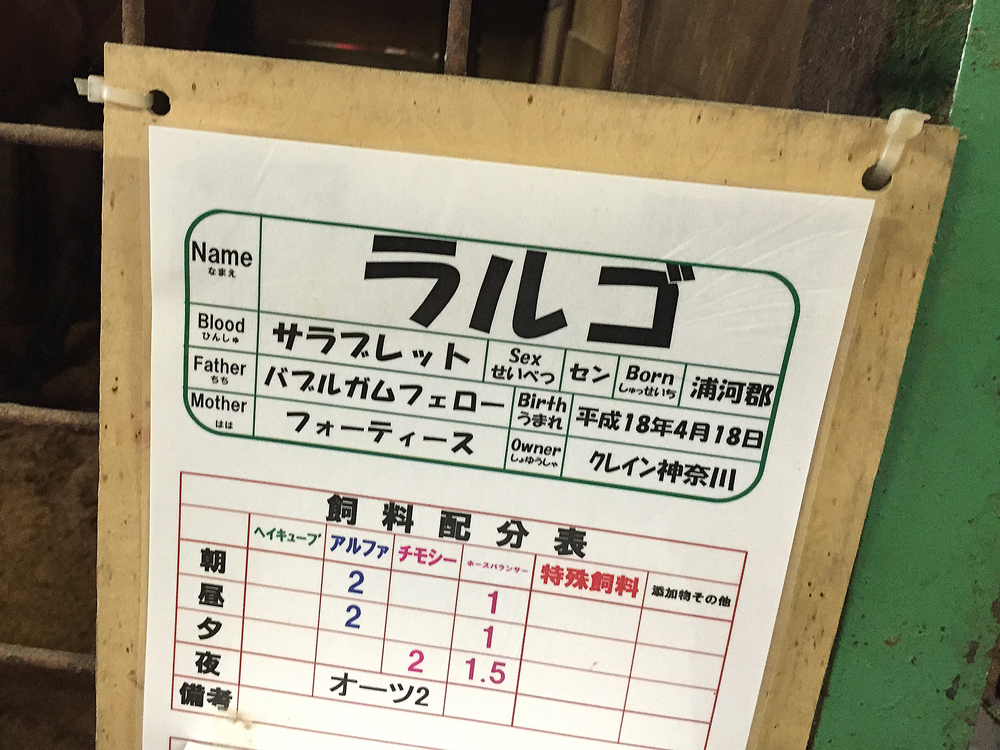 Name ラルゴ
なまえ
Blood サラブレット Sex セン Born 浦河郡
ひんしゅ せいべつ しゅっせいち
Father バブルガムフェロー Birth 平成18年4月18日
ちち うまれ
Mother フォーティース Owner クレイン神奈川
はは しょゆうしゃ
飼料配分表
ヘイキューブ アルファ チモシー ホースバランサー 特殊飼料 添加物その他
朝 2 1
昼 2 1
夕 2 1.5
夜
備考 オーツ2